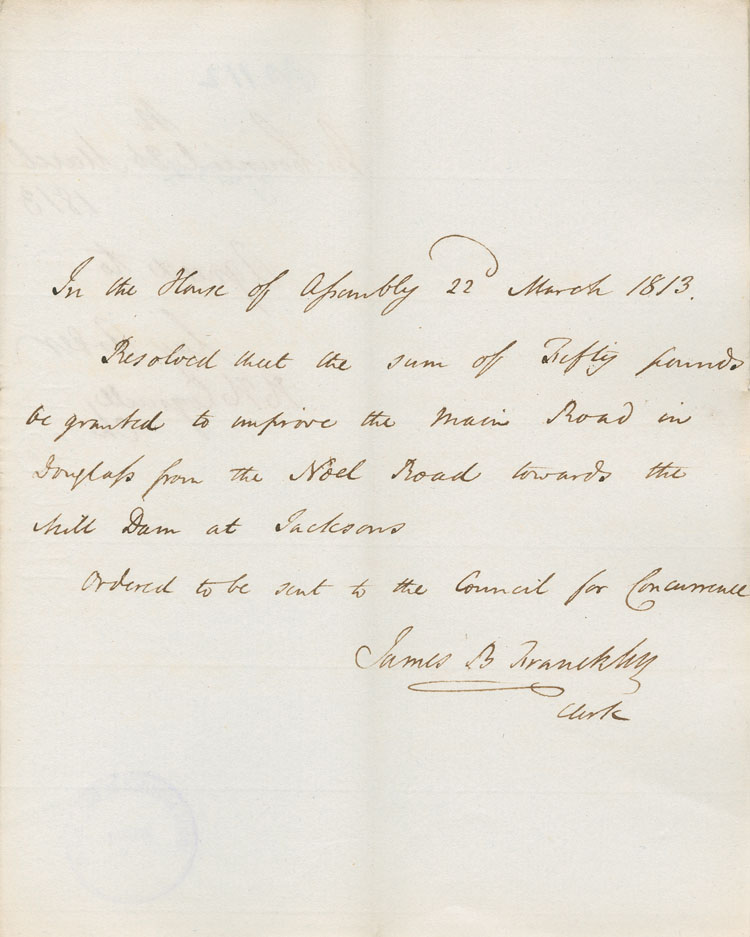 In the House of Assembly 22d March 1813.
Resolved that the sum of Fifty pounds
be granted to improve the Main Road in
Douglass from the Noel Road towards the
Mill Dam at Jacksons
Ordered to be sent to the Council for Concurrence
James B Franckly
Clerk